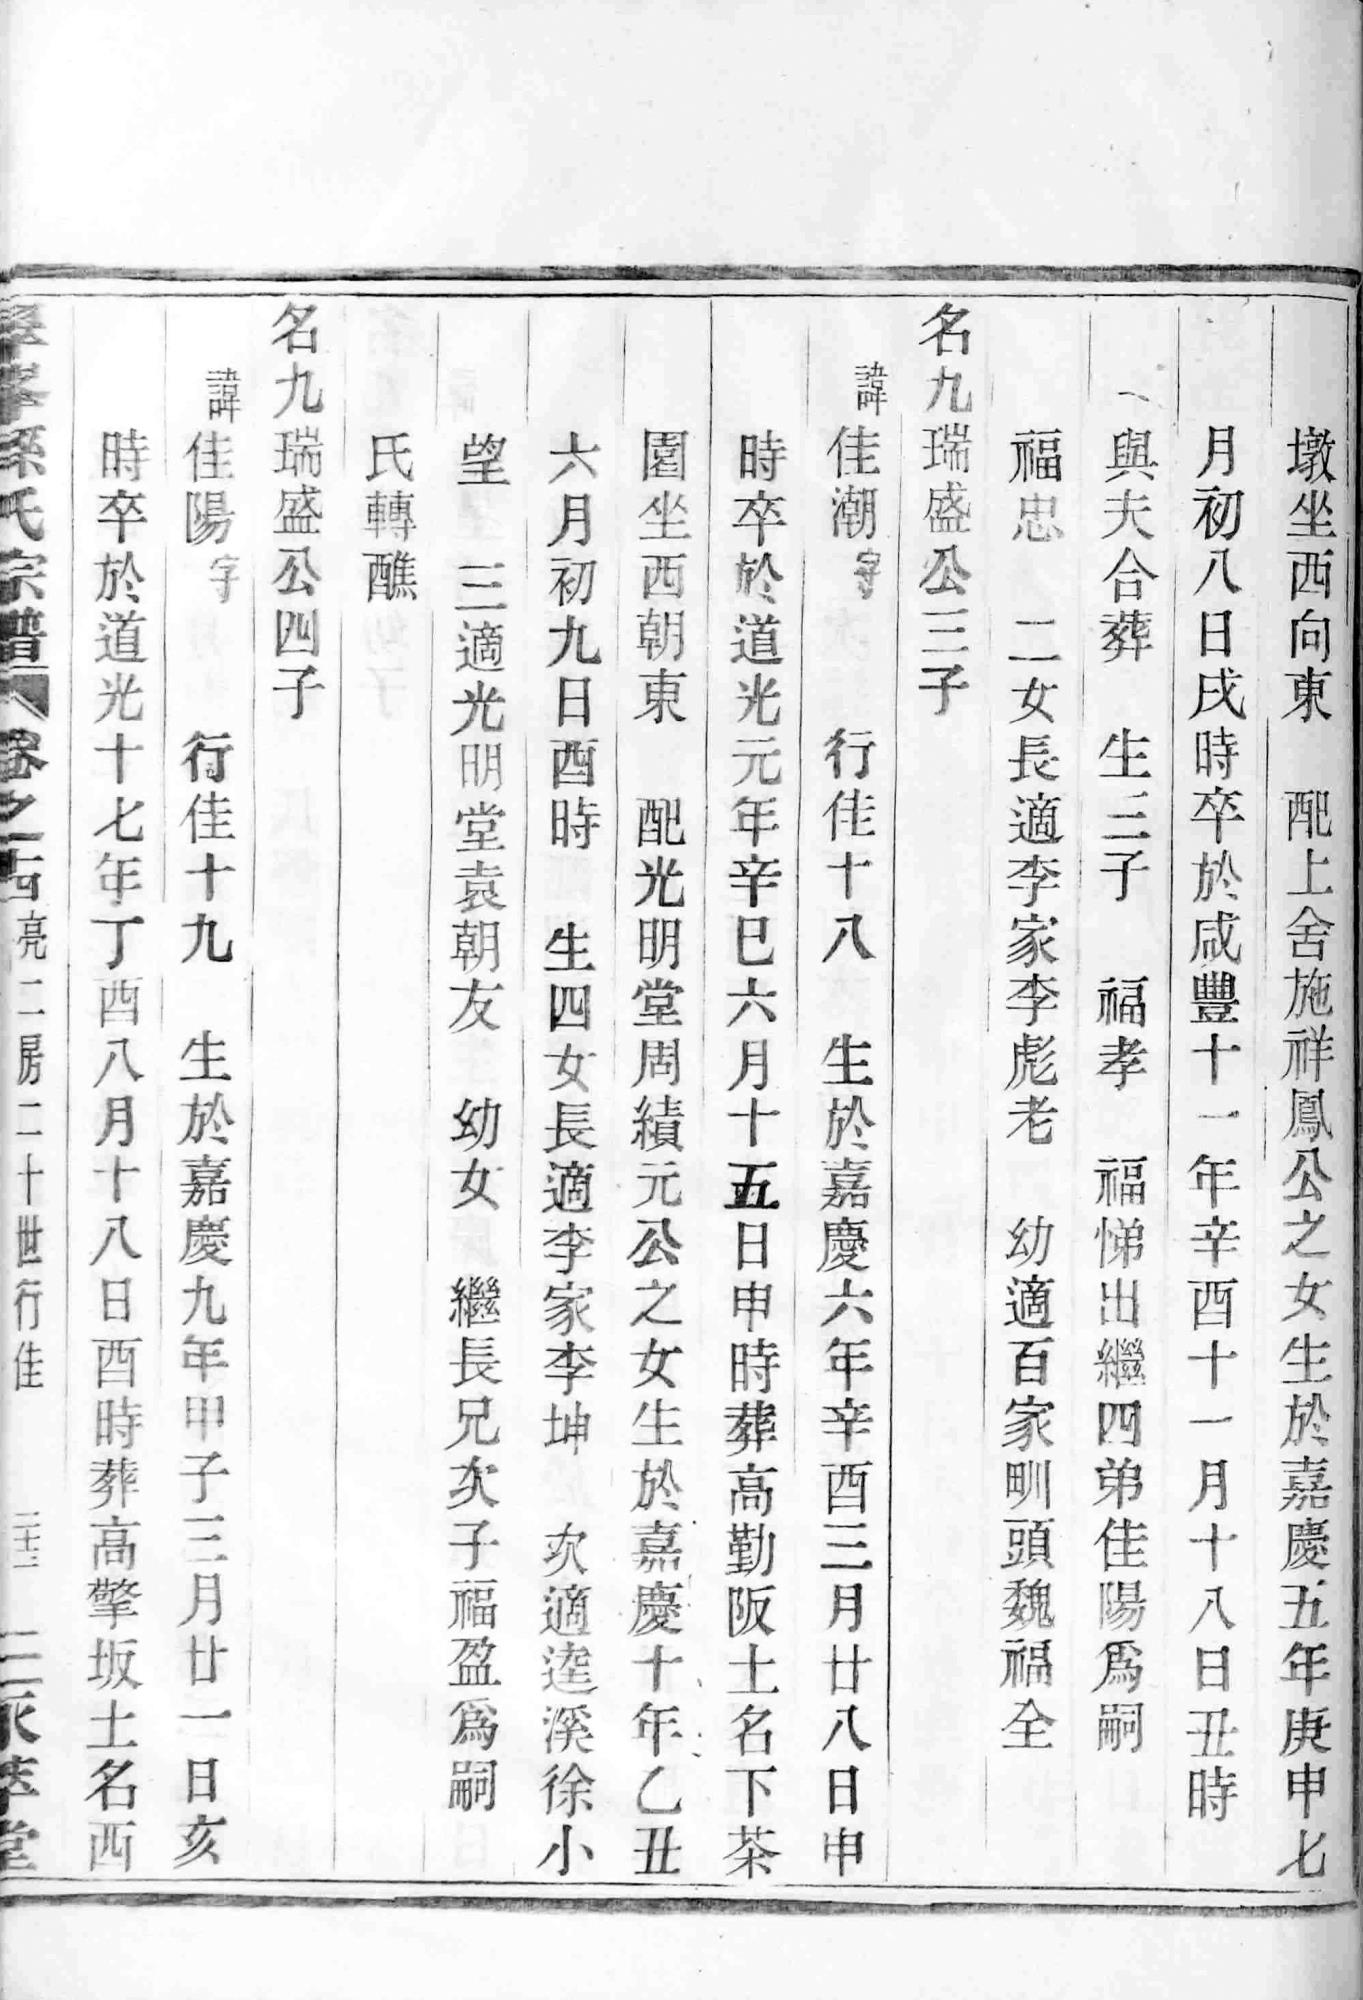 墩坐西向東　配上舍施祥鳳公之女生於嘉慶五年庚申七
月初八日戌時卒於咸豐十一年辛酉十一月十八日丑時
與夫合葬　生三子　福孝　福悌出繼四弟佳陽爲嗣
福忠　二女長適李家李彪老　幼適百家甽頭魏福全
名九瑞盛公三子
諱佳潮字　行佳十八　生於嘉慶六年辛酉三月廿八日申
時卒於道光元年辛巳六月十五日申時葬高勤阪土名下茶
園坐西朝東　配光明堂周績元公之女生於嘉慶十年乙丑
六月初九日酉時　生四女長適李家李坤　次適逵溪徐小
望　三適光明堂袁朝友　幼女　繼長兄次子福盈爲嗣
氏轉醮
名九瑞盛公四子
諱佳陽字　行佳十九　生於嘉慶九年甲子三月廿一日亥
時卒於道光十七年丁酉八月十八日酉時葬高擎坂土名西
孫氏宗譜　卷之十四　亮二房二十世行佳　堂